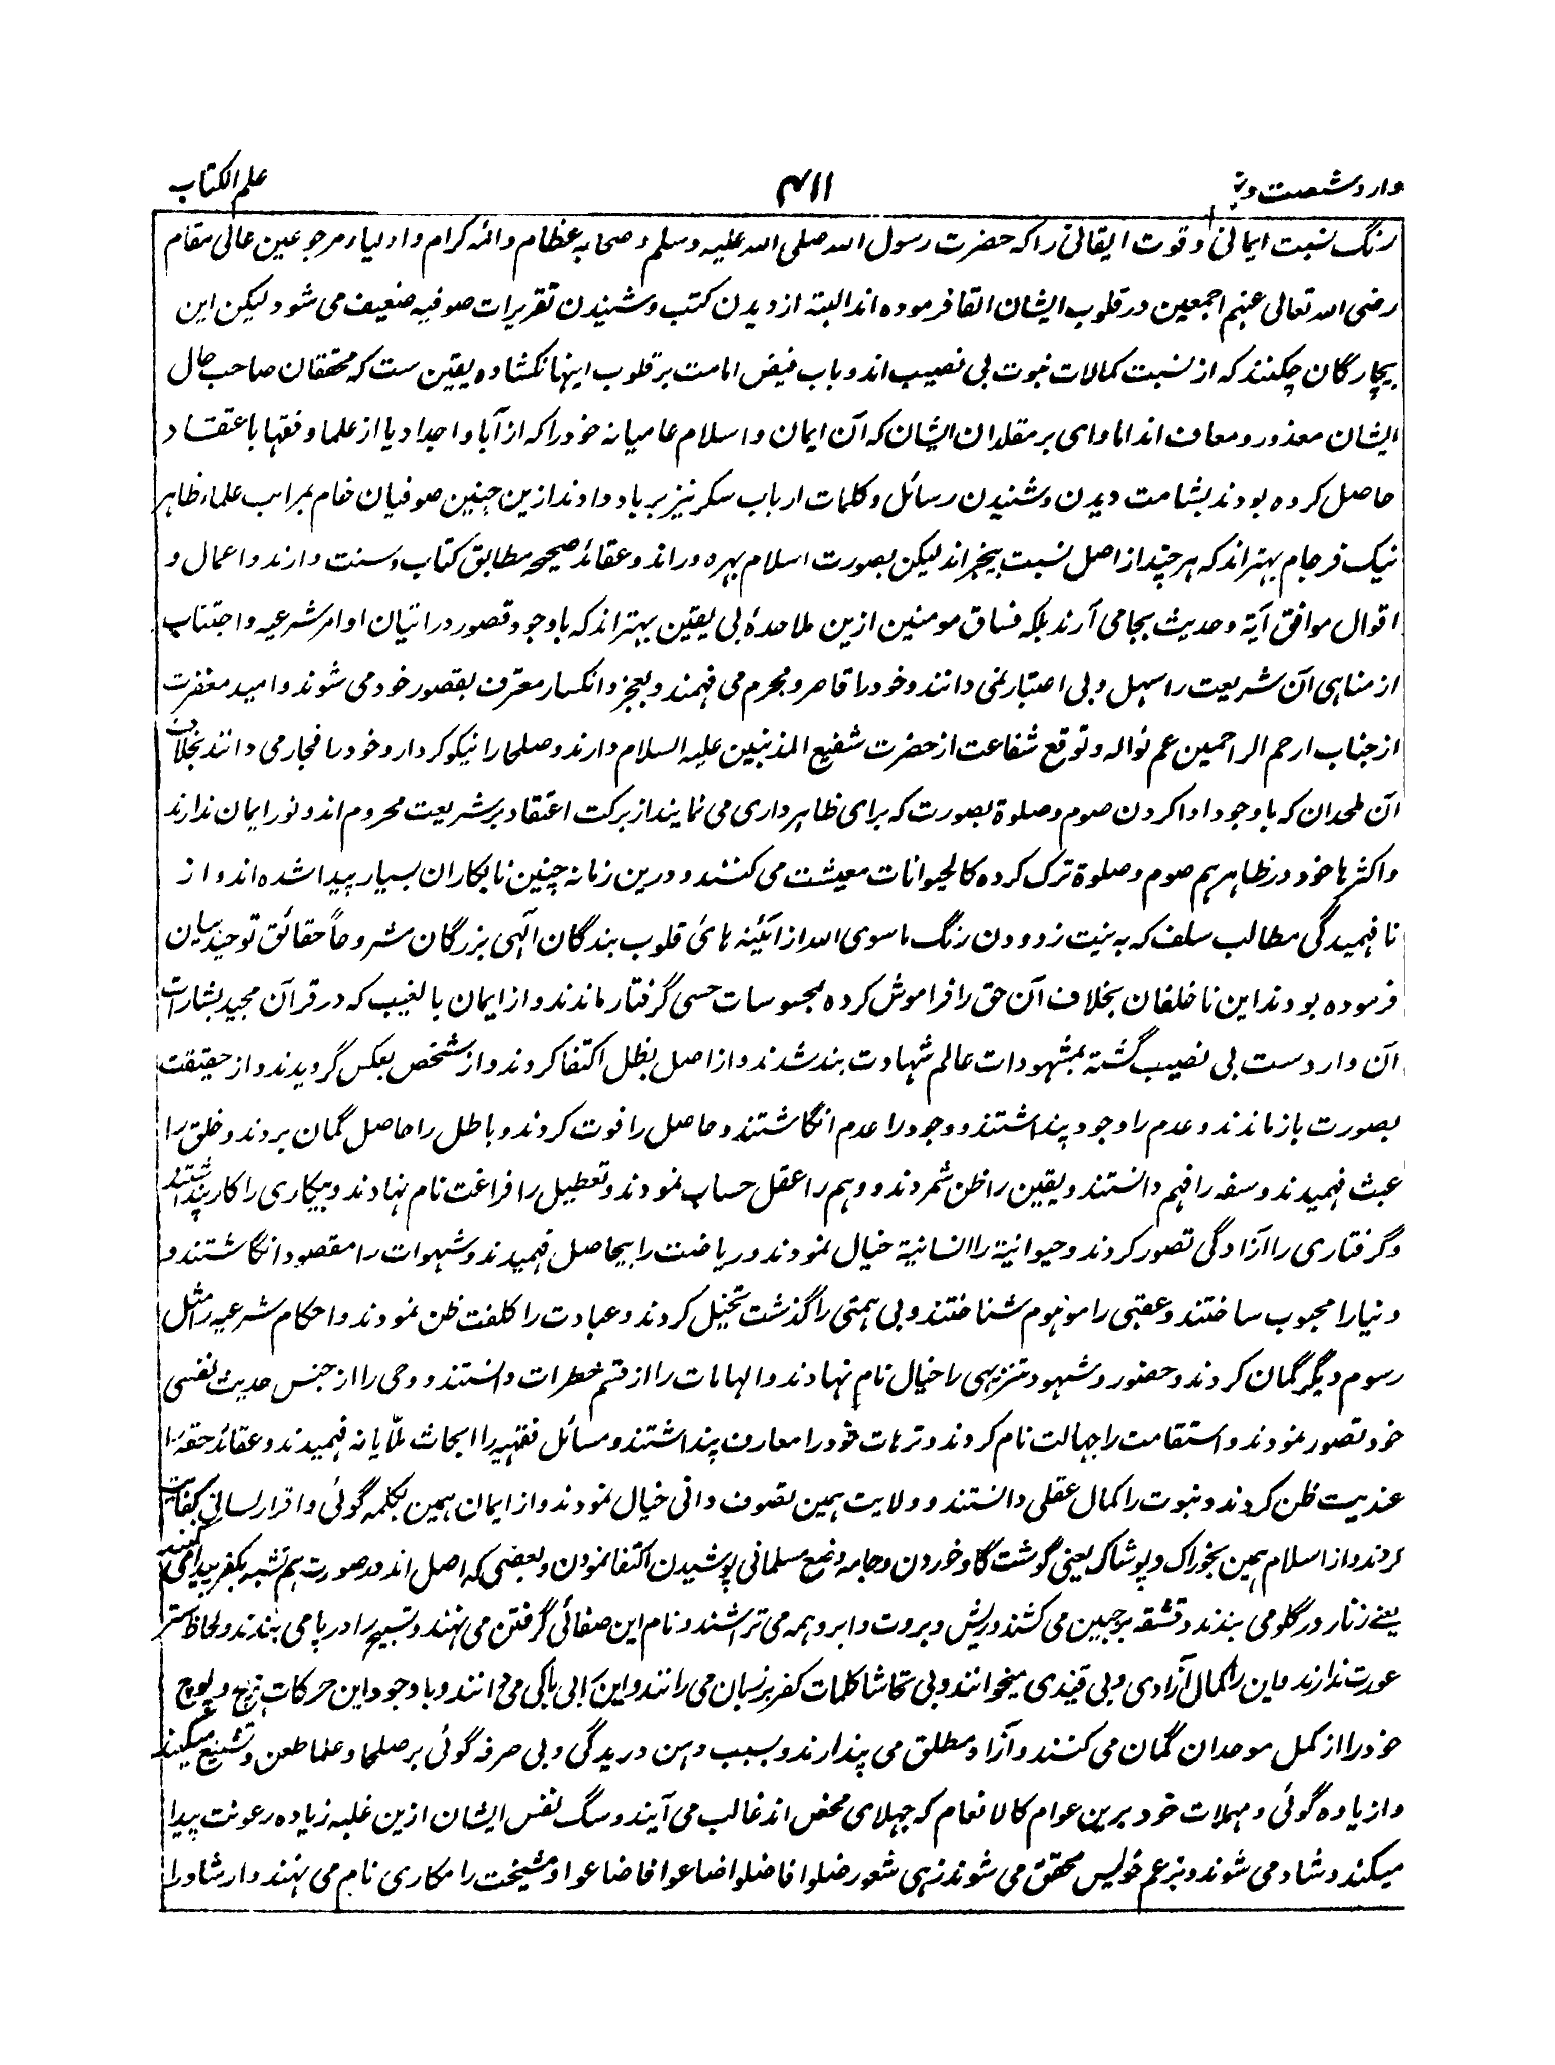 وارد شصت و نہ ۴۱۱ علم الکتاب
رنگ نسبت ایمانی و قوت ایقانی را کہ حضرت رسول اللہ صلی اللہ علیہ وسلم و صحابہ عظام و ائمہ کرام و اولیاء مرجوعین عالی مقام
رضی اللہ تعالی عنہم اجمعین در قلوب ایشان القا فرمودہ اند البتہ از دیدن کتب و شنیدن تقریرات صوفیہ ضعیف می شود لیکن این
بیچارگان چکنند کہ از نسبت کمالات نبوت بی نصیب اند و باب فیض امامت بر قلوب اینہا نکشادہ یقین ست کہ محققان صاحب حال
ایشان معذور و معاف اند اما وای بر مقلدان ایشان کہ آن ایمان و اسلام عامیانہ خود را کہ از آبا و اجداد یا از علما و فقہا باعتقاد
حاصل کردہ بودند بشامت دیدن و شنیدن رسائل و کلمات ارباب سکر نیز برباد دادند ازین چنین صوفیان خام بمراتب علماء ظاہر
نیک فرجام بہتر اند کہ ہر چند از اصل نسبت بیخبر اند لیکن بصورت اسلام بہرہ ور اند و عقائد صحیحہ مطابق کتاب و سنت دارند و اعمال و
اقوال موافق آیۃ و حدیث بجا می آرند بلکہ فساق مومنین ازین ملاحدۂ بی یقین بہتر اند کہ باوجود قصور در اتیان اوامر شرعیہ و اجتناب
از مناہی آن شریعت را سہل و بی اعتبار نمی دانند و خود را قاصر و مجرم می فہمند و بعجز و انکسار معترف بقصور خود می شوند و امید مغفرت
از جناب ارحم الراحمین عم نوالہ و توقع شفاعت از حضرت شفیع المذنبین علیہ السلام دارند و صلحا را نیکو کردار و خود را فجار می دانند بخلاف
آن ملحدان کہ باوجود ادا کردن صوم و صلوۃ بصورت کہ برای ظاہر داری می نمایند از برکت اعتقاد بر شریعت محروم اند و نور ایمان ندارند
و اکثرہا خود در ظاہر ہم صوم و صلوۃ ترک کردہ کالحیوانات معیشت می کنند و درین زمانہ چنین نابکاران بسیار پیدا شدہ اند و از
نافہمیدگی مطالب سلف کہ بہ نیت زدودن رنگ ما سوی اللہ از آئینہ ہای قلوب بندگان الٰہی بزرگان مشروحاً حقائق توحید بیان
فرمودہ بودند این ناخلفان بخلاف آن حق را فراموش کردہ بمحسوسات حسی گرفتار ماندند و از ایمان بالغیب کہ در قرآن مجید بشارات
آن وارد ست بی نصیب گشتہ بمشہودات عالم شہادت بند شدند و از اصل بظل اکتفا کردند و از شخص بعکس گرویدند و از حقیقت
بصورت باز ماندند و عدم را وجود پنداشتند و وجود را عدم انگاشتند و حاصل را فوت کردند و باطل را حاصل گمان بردند و خلق را
عبث فہمیدند و سفہ را فہم دانستند و یقین را ظن شمردند و وہم را عقل حساب نمودند و تعطیل را فراغت نام نہادند و بیکاری را کار پنداشتند
و گرفتاری را آزادگی تصور کردند و حیوانیۃ را انسانیۃ خیال نمودند و ریاضت را بیحاصل فہمیدند و شہوات را مقصود انگاشتند و
دنیا را محبوب ساختند و عقبی را موہوم شناختند و بی ہمتی را گذشت تخیل کردند و عبادت را کلفت ظن نمودند و احکام شرعیہ را مثل
رسوم دیگر گمان کردند و حضور و شہود تنزیہی را خیال نام نہادند و الہامات را از قسم خطرات دانستند و وحی را از جنس حدیث نفسی
خود تصور نمودند و استقامت را جہالت نام کردند و ترہات خود را معارف پنداشتند و مسائل فقہیہ را ابحاث ملّایانہ فہمیدند و عقائد حقہ را
عندیت ظن کردند و نبوت را کمال عقلی دانستند و ولایت ہمین تصوف دانی خیال نمودند و از ایمان ہمین بکلمہ گوئی و اقرار لسانی کفایت
کردند و از اسلام ہمین بخوراک و پوشاک یعنی گوشت گاو خوردن و جامہ وضع مسلمانی پوشیدن اکتفا نمودن و بعضی کہ اصل اند در صورت ہم تشبہ بکفر پیدا می کنند
یعنے زنار در گلو می بندند و قشقہ بر جبین می کشند و ریش و بروت و ابرو ہمہ می تراشند و نام این صفائی گرفتن می نہند و تسبیح را در پا می بندند و لحاظ ستر
عورت ندارند و این را کمال آزادی و بی قیدی میخوانند و بی تحاشا کلمات کفر بر زبان می رانند و این را بی باکی می دانند و باوجود این حرکات ہیچ و پوچ
خود را از کمل موحدان گمان می کنند و آزاد مطلق می پندارند و بسبب دہن دریدگی و بی صرفہ گوئی بر صلحا و علما طعن و تشنیع میکنند
و از یاوہ گوئی و مہملات خود برین عوام کالانعام کہ جہلای محض اند غالب می آیند و سگ نفس ایشان ازین غلبہ زیادہ رعونت پیدا
میکند و شاد می شوند و بزعم خویش محقق می شوند زہی شعور ضلوا فاضلوا ضاعوا فاضاعوا و مشیخت را مکاری نام می نہند و ارشاد را